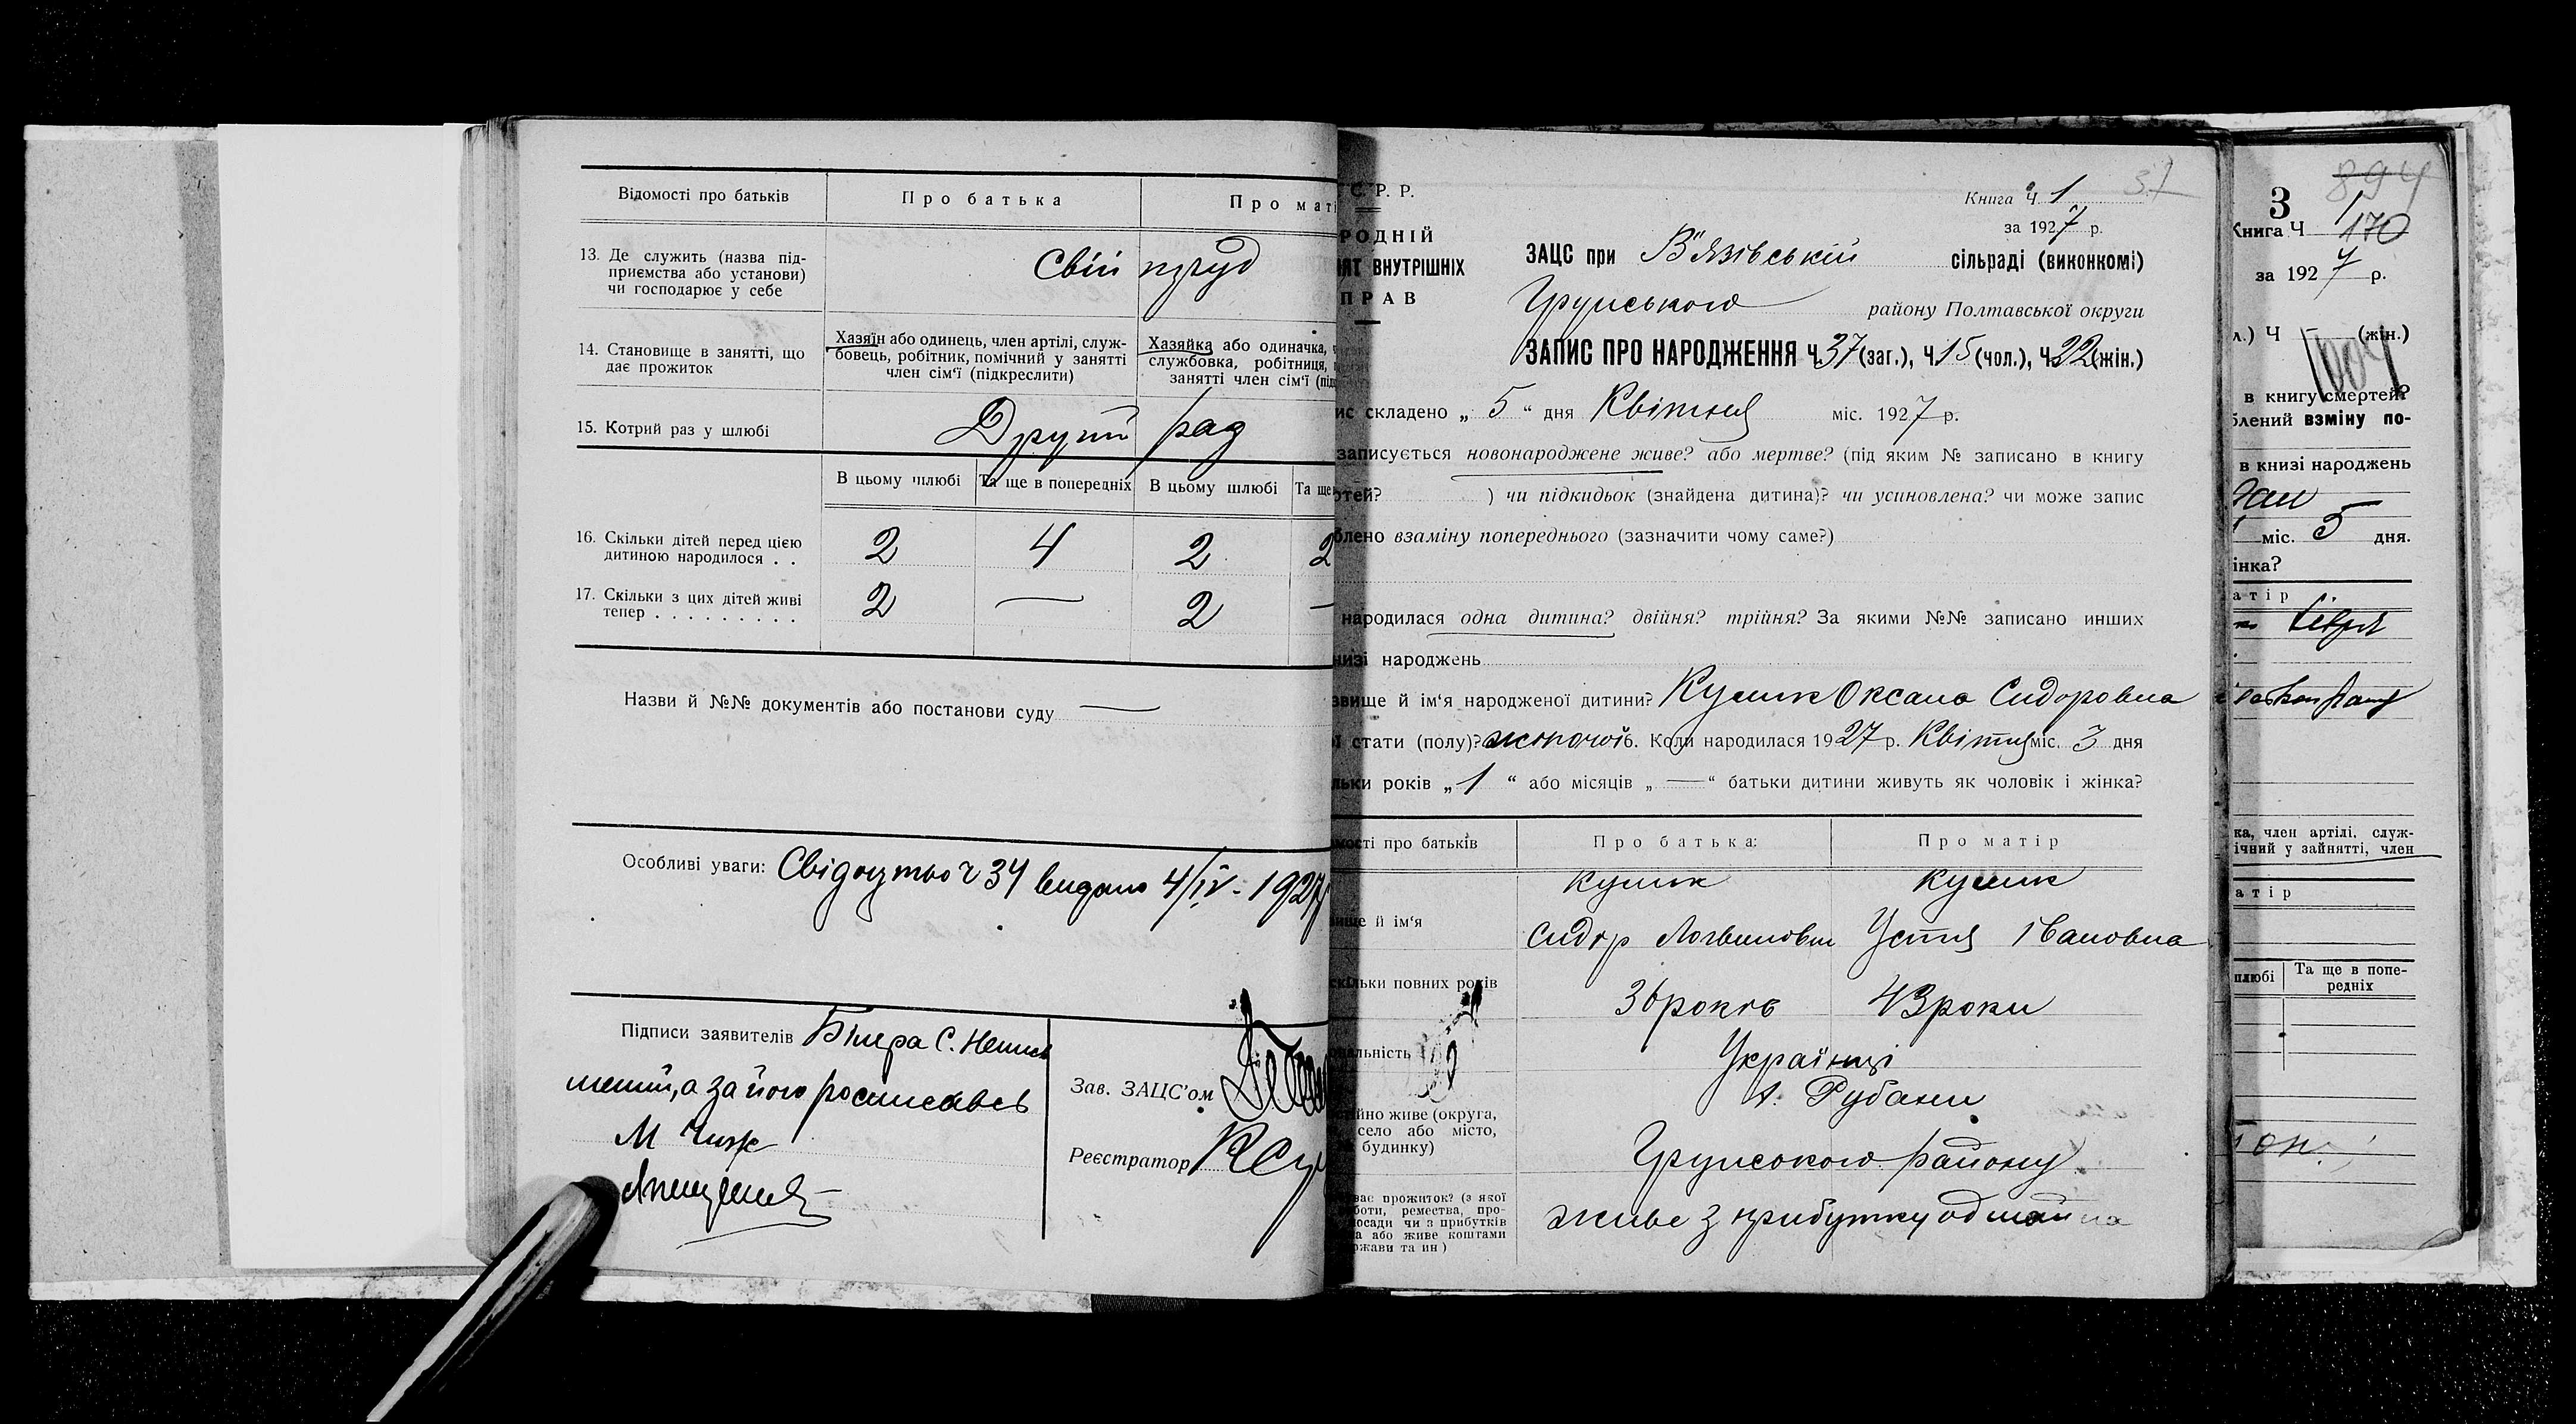 Відомості про батьків
Про батька
Про маті
13. Де служить (назва під-
приємства або установи)
чи господарює у себе
Свій труд
14. Становище в занятті, що
дає прожиток
Хазяїн або одинець, член артілі, служ-
бовець, робітник, помічний у занятті
член сім'ї (підкреслити)
Хазяйка або одиначка,
службовка, робітниця,
занятті член сім'ї (під
15. Котрий раз у шлюбі
Другий раз
В цьому шлюбі
Та ще в попередніх
В цьому шлюбі
Та ще
16. Скільки дітей перед цією
дитиною народилося . .
2 4 2 2
17. Скільки з цих дітей живі
тепер . . . . . . . . .
2 — 2 —
Назви й №№ документів або постанови суду —
Особливі уваги: Свідоцтво ч 34 видано 4/IV - 1927
Підписи заявителів
а за його росписавсь
М Чиж
Зав. ЗАЦС'ом
Реєстратор
С. Р. Р.
РОДНІЙ
ІЯТ ВНУТРІШНІХ
ПРАВ
37
Книга Ч 1
за 1927 р.
ЗАЦС при В'язівській сільраді (виконкомі)
Грунського району Полтавської округи
ЗАПИС ПРО НАРОДЖЕННЯ Ч. 37 (заг.), Ч 15 (чол.), Ч 22 (жін.)
ис складено „ 5 “ дня Квітня міс. 1927 р.
записується новонароджене живе? або мертве? (під яким № записано в книгу
ртей? ) чи підкидьок (знайдена дитина)? чи усиновлена? чи може запис
блено взаміну попереднього (зазначити чому саме?)
народилася одна дитина? двійня? трійня? За якими №№ записано инших
низі народжень
звище й ім'я народженої дитини? Кулик Оксана Сидоровна
ї стати (полу)? жіночої 6. Коли народилася 1927 р. Квітня міс. 3 дня
льки років „ 1 “ або місяців „ — “ батьки дитини живуть як чоловік і жінка?
мості про батьків
Про батька:
Про матір
вище й ім'я
Кулик
Сидор Логвинович
Кулик
Устя Івановна
скільки повних років
36 років
43 роки
ональність
Українці
ійно живе (округа,
село або місто,
будинку)
х. Рубани
Грунського району
ває прожиток? (з якої
боти, ремества, про-
посади чи з прибутків
а або живе коштами
ржави та ин)
живе з прибутку од майна
894
3
Книга Ч 1
170
за 1927 р.
л.) Ч (жін.)
в книгу смертей?
блений взміну по-
в книзі народжень
міс. 5 дня.
інка?
атір
ка, член артілі, служ-
ічний у зайнятті, член
атір
шлюбі
Та ще в попе-
редніх